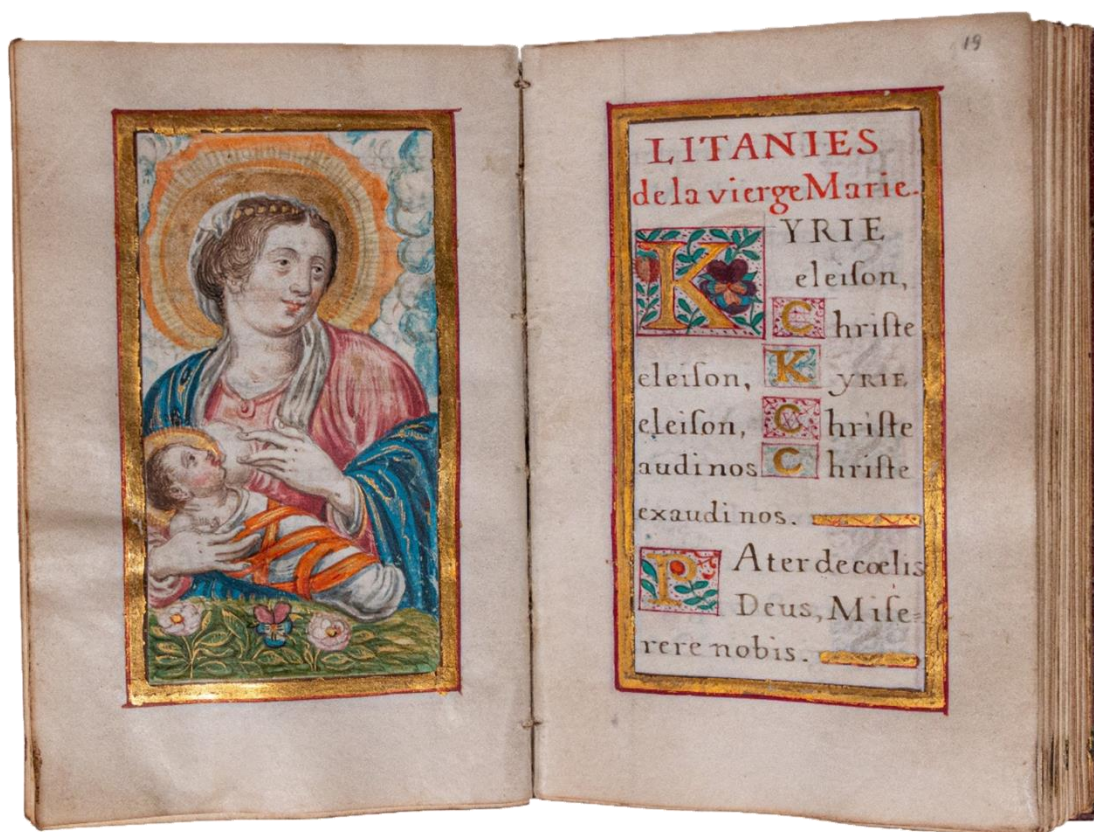 19
LITANIES
de la vierge Marie.
KYRIE
eleiſon,
Chriſte
eleiſon, KYRIE
eleiſon, Chriſte
audi nos Chriſte
exaudi nos.
PAter de cœlis
Deus, Miſe=
rere nobis.